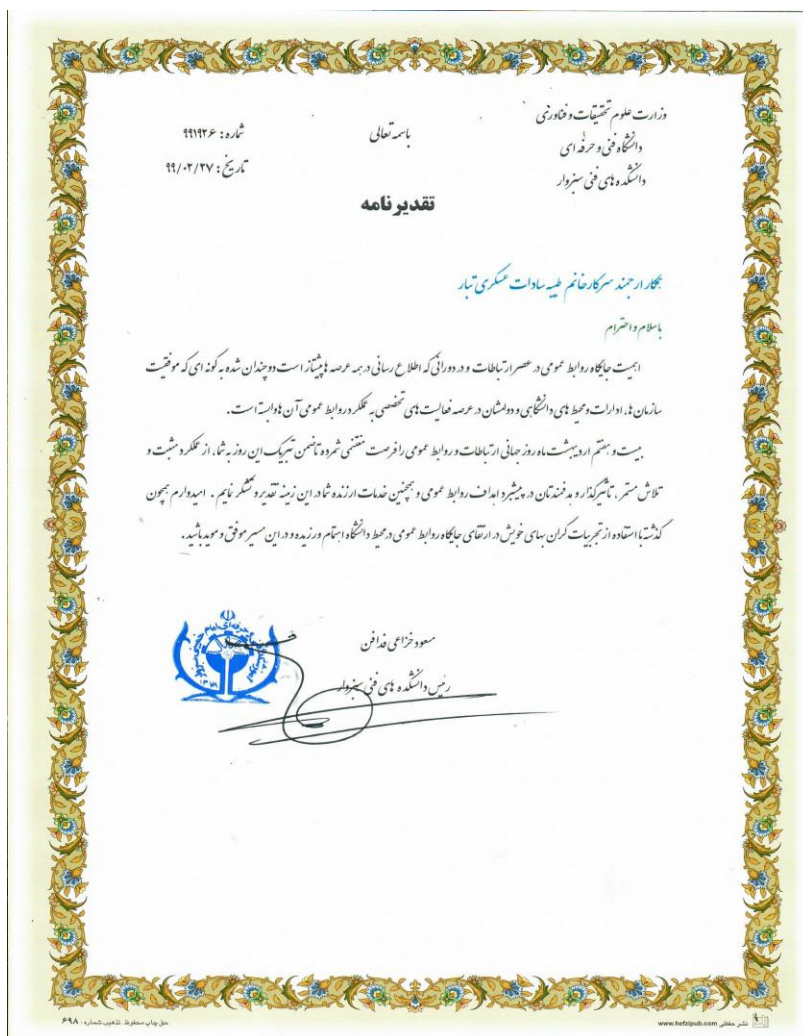 وزارت علوم تحقیقات و فناوری
دانشگاه فنی و حرفه ای
دانشکده های فنی سبزوار
باسمه تعالی
شماره : ۹۹۱۹۲۶
تاریخ : ۹۹/۰۲/۲۷
تقدیرنامه
همکار ارجمند سرکار خانم طیبه سادات عسکری تبار
با سلام و احترام
اهمیت جایگاه روابط عمومی در عصر ارتباطات و در دورانی که اطلاع رسانی در همه عرصه ها پیشتاز است دوچندان شده به گونه ای که موفقیت
سازمان ها، ادارات و محیط های دانشگاهی و دولتشان در عرصه فعالیت های تخصصی به عملکرد روابط عمومی آن ها وابسته است.
بیست و هفتم اردیبهشت ماه روز جهانی ارتباطات و روابط عمومی را فرصت مغتنمی شمرده تا ضمن تبریک این روز به شما، از عملکرد مثبت و
تلاش مستمر، تاثیرگذار و هدفمندتان در پیشبرد اهداف روابط عمومی و همچنین خدمات ارزنده شما در این زمینه تقدیر و تشکر نمایم . امیدوارم همچون
گذشته با استفاده از تجربیات گران بهای خویش در ارتقای جایگاه روابط عمومی در محیط دانشگاه اهتمام ورزیده و در این مسیر موفق و موید باشید.
مسعود خزاعی فدافن
رئیس دانشکده های فنی سبزوار
حق چاپ محفوظ. تذهیب شماره: ۶۹۸
www.hefzipub.com نشر حفظی